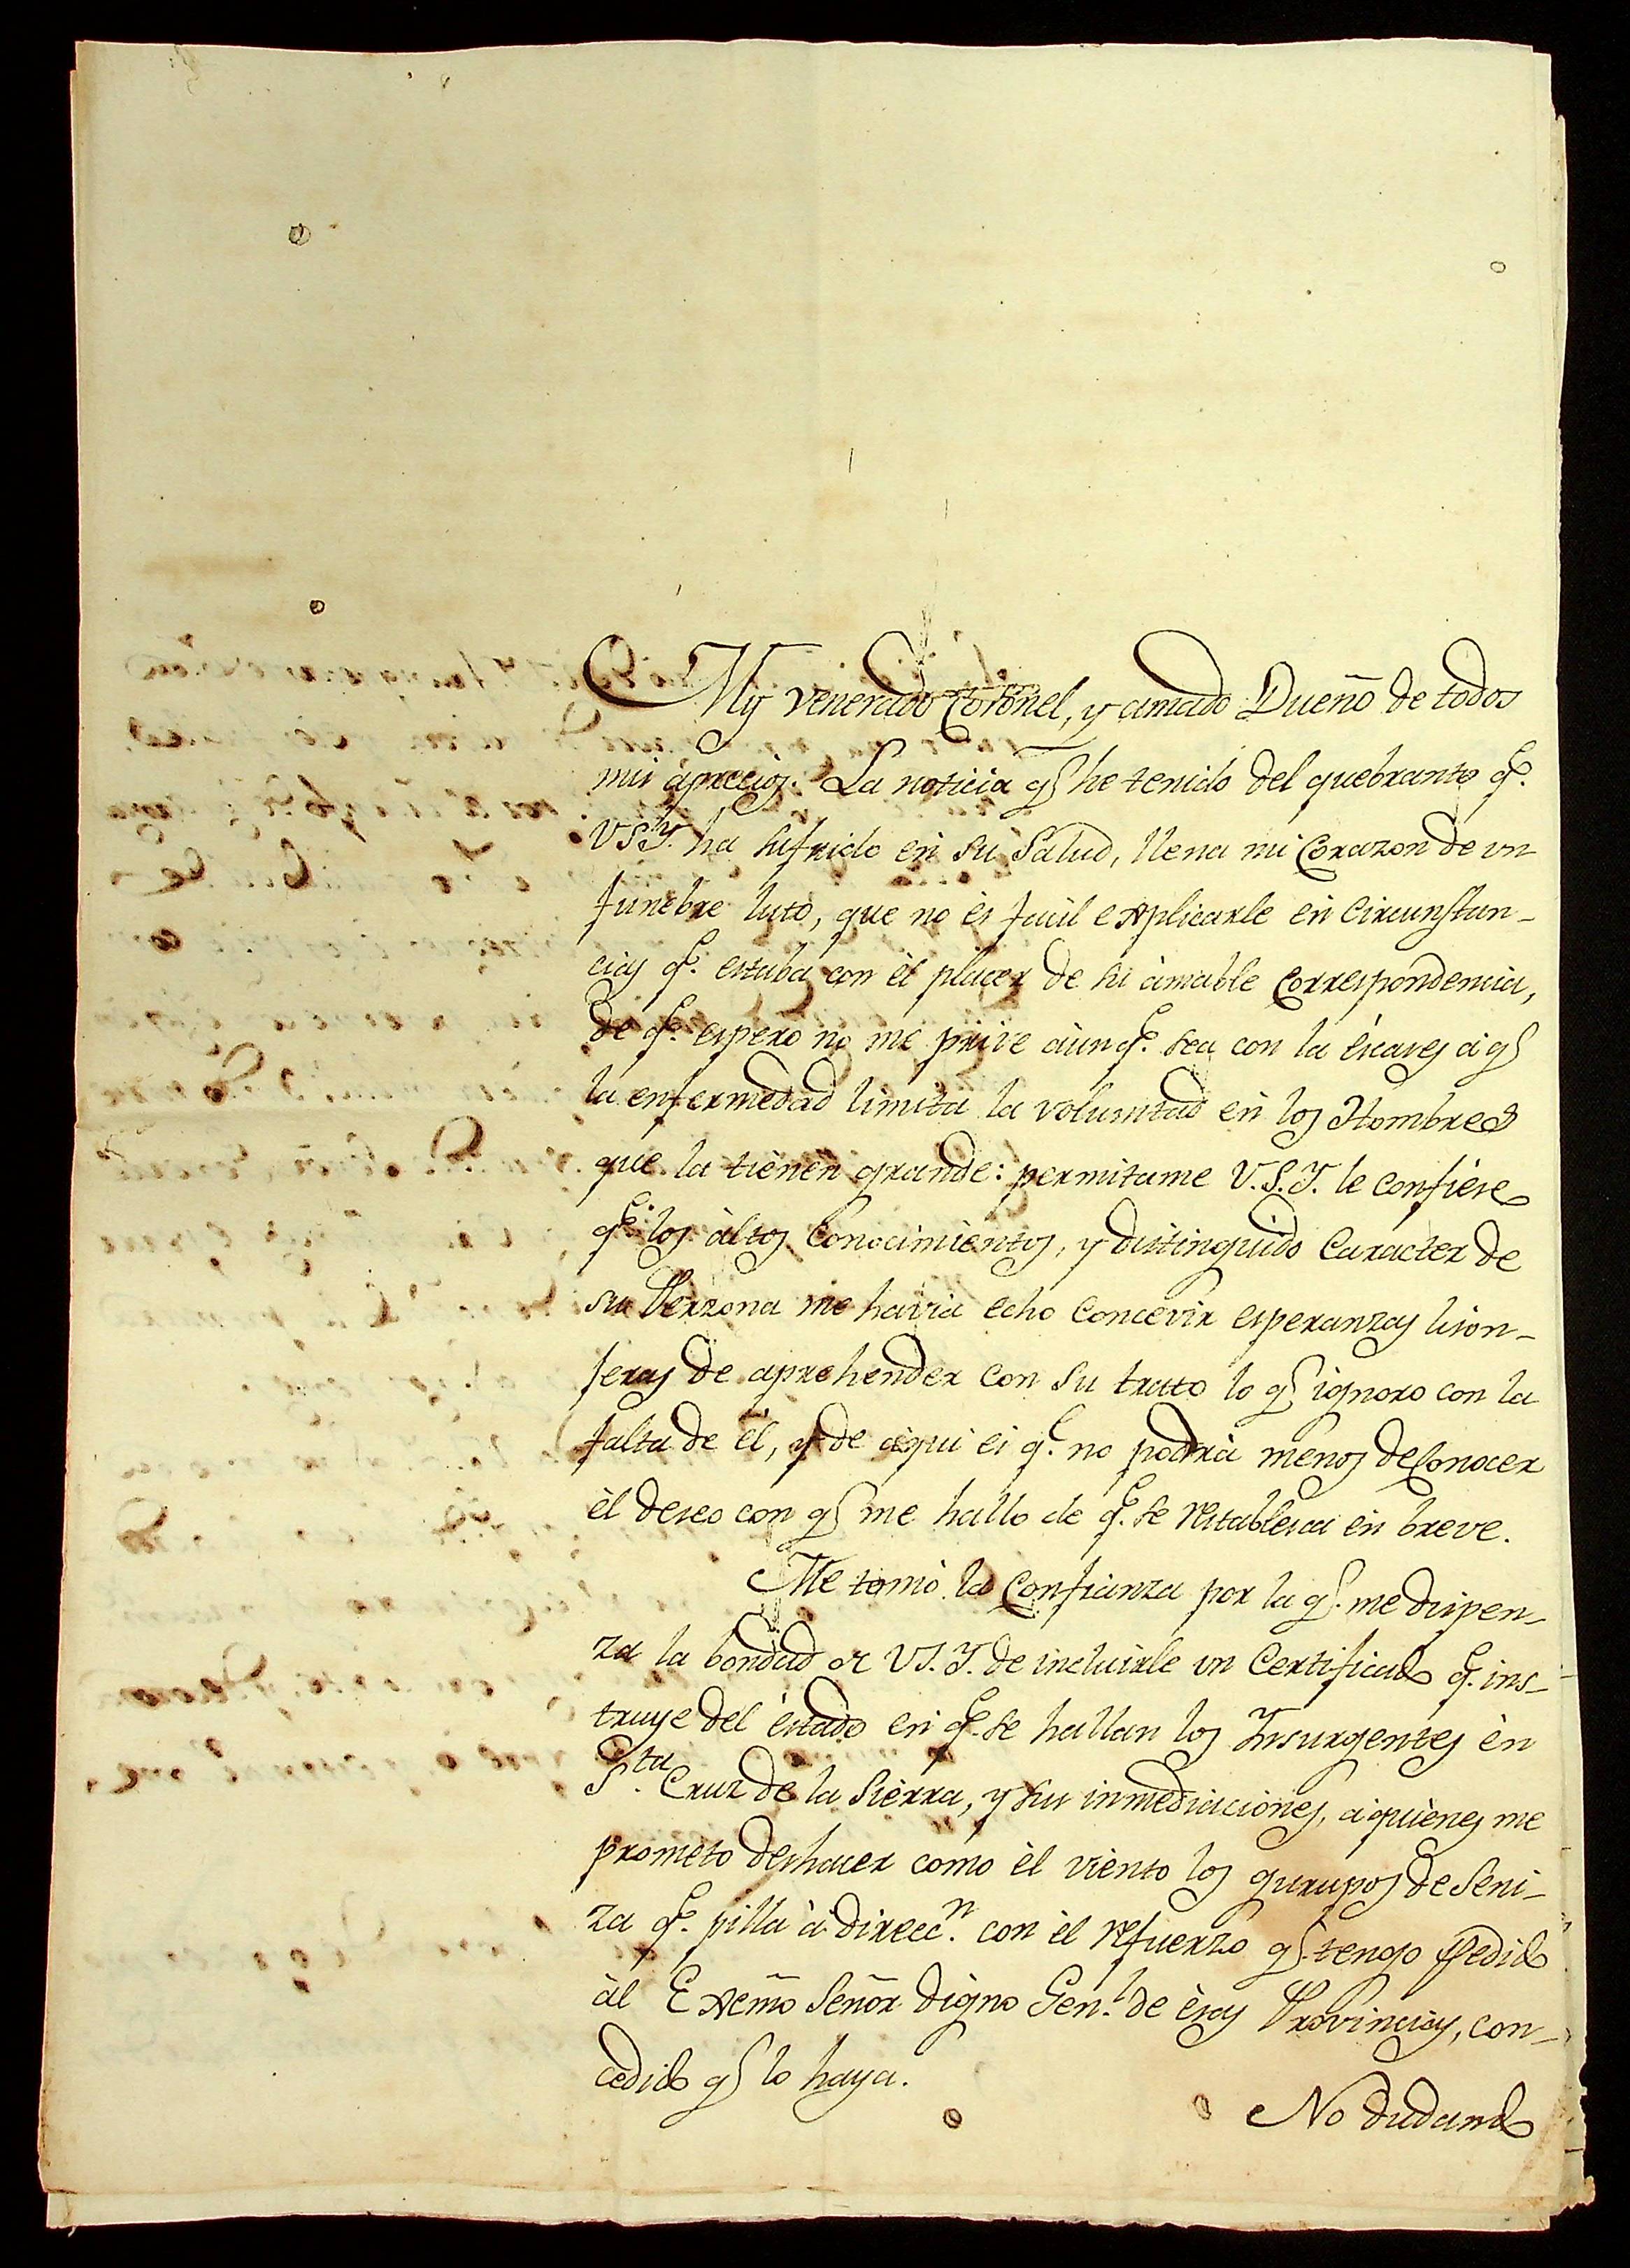 My venerado Coronel, y amado Dueño de todos
mis àprecios. La noticia q.e he tenido del quebranto q.e
VSY. ha sufrido en su Salud, llena mi Corazon de un
funebre luto, que no es facil explicarle en Circunstan-
cias q.e estaba con èl placer de su àmable Correspondencia,
de q.e espero no me prive àunq.e sea con la èscases à q.e
la enfermedad limita la voluntad en los Hombres
que la tienen grande: permitame V.S.Y. le confiese
q.e los àltos Conocimientos, y distinguido Caracter de
su Perzona me havia echo Concevir esperanzas lison-
jeras de aprehender con su trato lo q.e ignoro con la
falta de èl, y de àqui es q.e no podrà menos de Conocer
èl deseo con q.e me hallo de q.e se restablesca en breve.
Me tomo la Confianza por la q.e me dispen-
za la bondad de VS.Y. de incluirle un Certificado q.e ins-
truye del èstado en q.e se hallan los Insurgentes èn
S.ta Cruz de la Sierra, y sus inmediaciones, à quienes me
prometo deshacer como èl viento los gurupos de Seni-
za q.e pilla à direcc.n con èl refuerzo q.e tengo pedido
àl Exemo Señor digno Gen.l de èsas Provincias, con-
cedido q.e lo haya.
No dudando